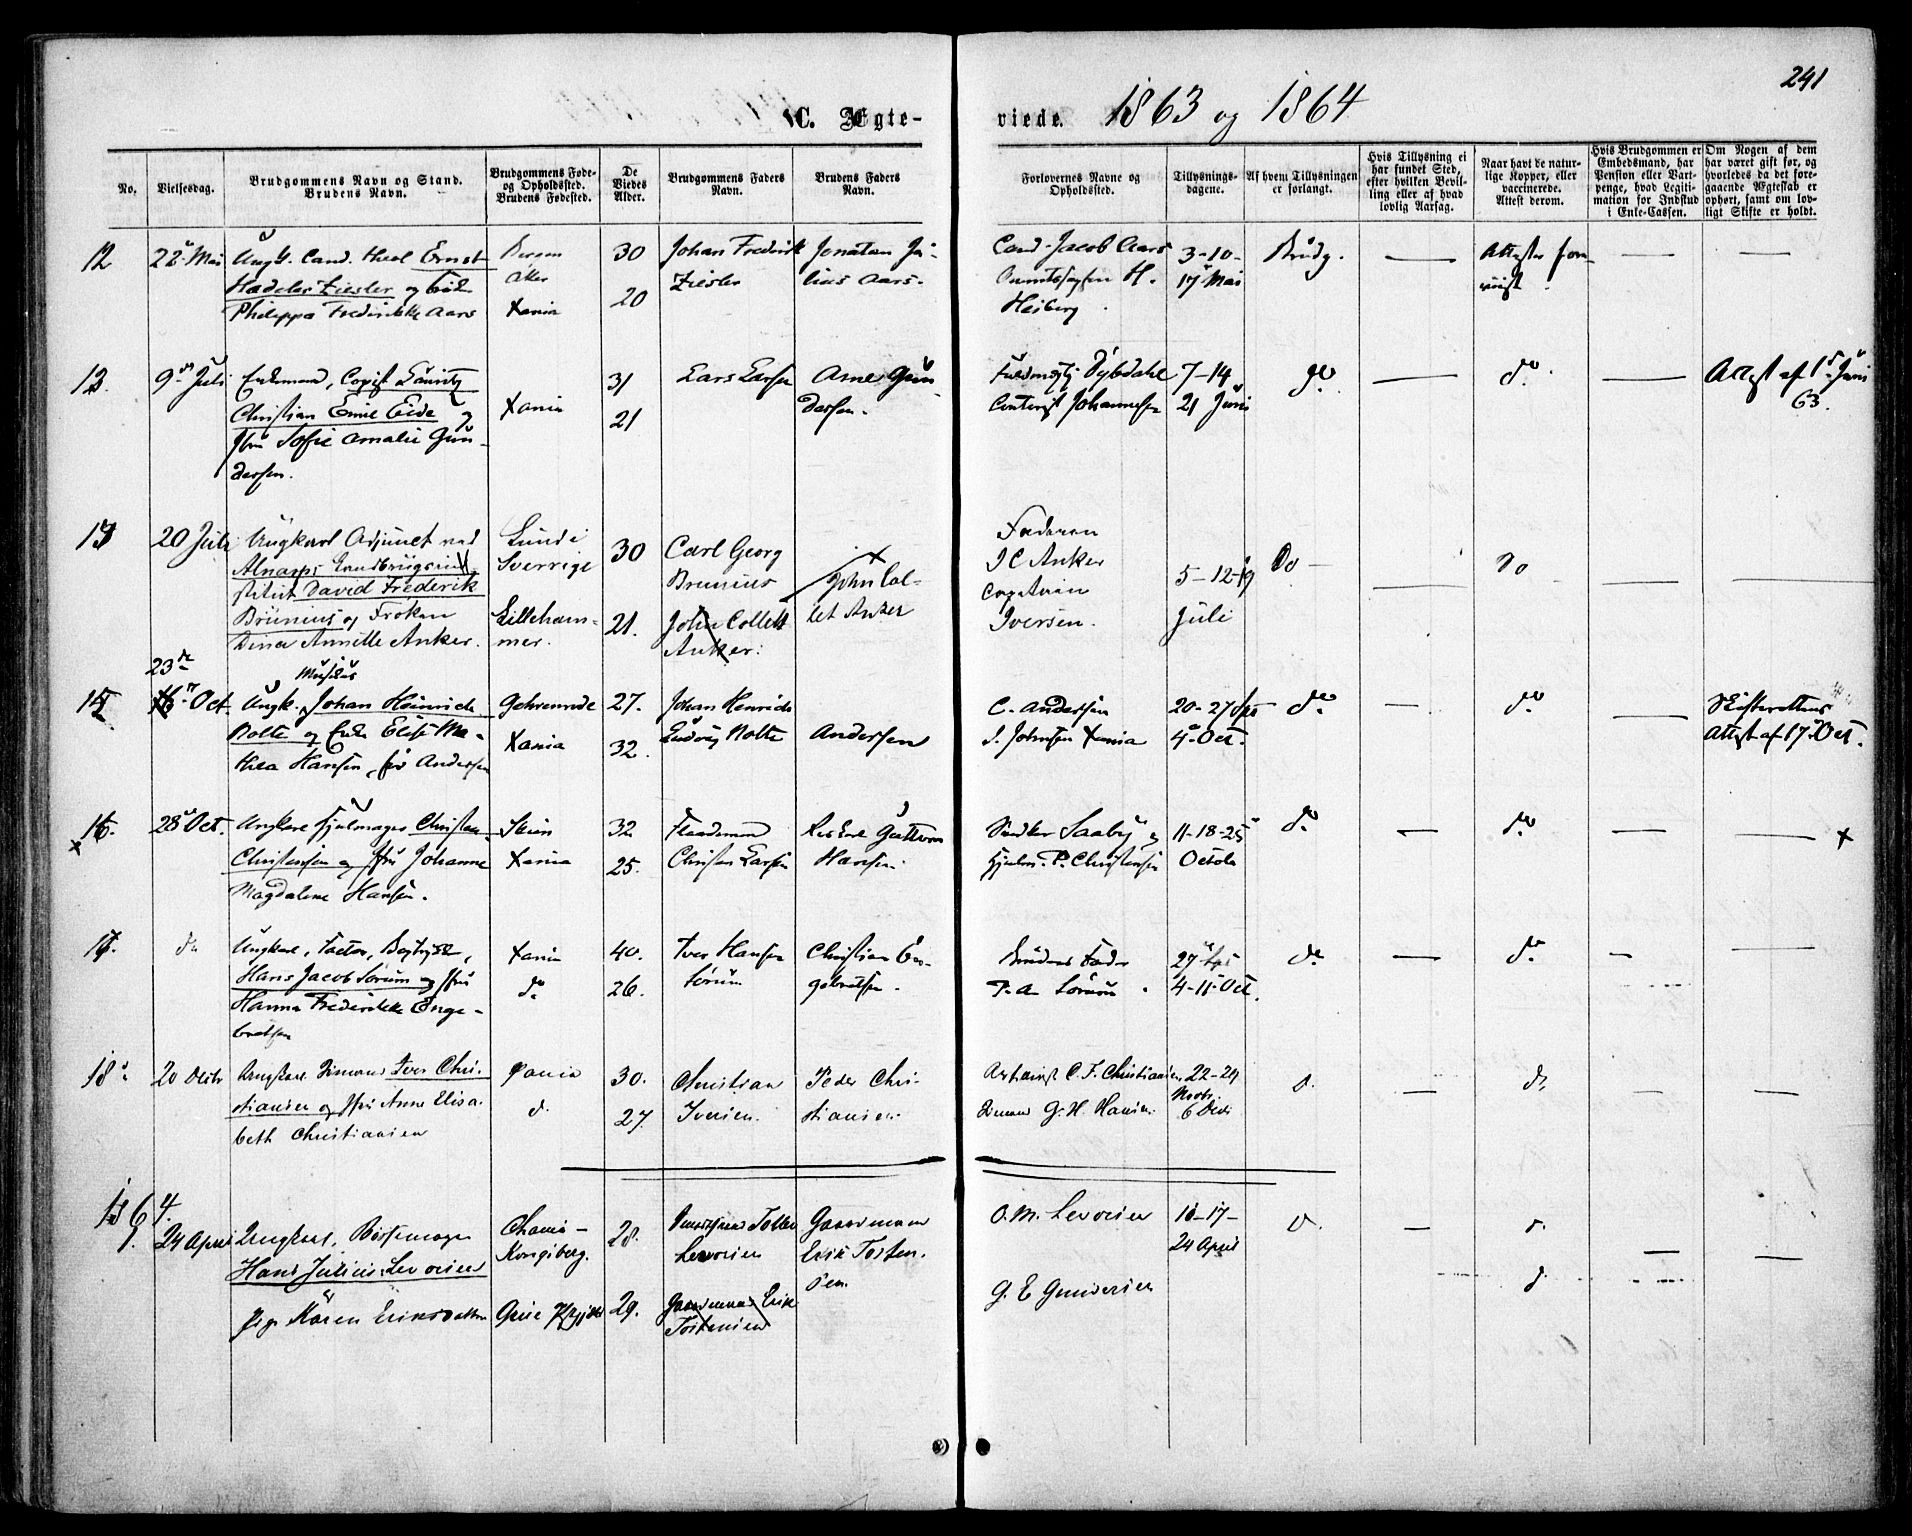 241
C. Ægteviede. 1863 og 1864
No.
Vielsesdag.
Brudgommens Navn og Stand.
Brudens Navn.
Brudgommens Føde-
og Opholdssted.
Brudens Fødested.
De
Viedes
Alder.
Brudgommens Faders
Navn.
Brudens Faders
Navn.
Forlovernes Navne og
Opholdssted.
Tillysnings-
dagene.
Af hvem Tillysningen
er forlangt.
Hvis Tillysning ei
har fundet Sted,
efter hvilken Bevil-
ling eller af hvad
lovlig Aarsag.
Naar havt de natur-
lige Kopper, eller
vaccinerede.
Attest derom.
Hvis Brudgommen er
Embedsmand, har
Pension eller Vart-
penge, hvad Legiti-
mation for Indskud
i Enke-Cassen.
Om Nogen af dem
har været gift før, og
hvorledes da det fore-
gaaende Ægteskab er
ophørt, samt om lov-
ligt Skifte er holdt.
12 22 Mai Ungk. Cand. theol Ernst
Ziesler og
Philippa Fredrikke Aars
Bergen
Aker
Xania
30
20
Johan Fredrik
Ziesler
Jonatan Ju-
lius Aars.
Cand. Jacob Aars
H.
Heiberg
3-10-
17 Mai
Brudg.
Attester fore-
vist.
13. 9 Juli Enkemand, Copist Lauritz
Christian Emil Eide og
Jfru Sofie Amalie Gun-
dersen.
Xania
31
21
Lars Larsen
Arne Gun-
dersen.
Fuldmægtig Dybdahl
Contorist Johannesen
7-14
21 Juni
do
do
Attest af 1 Juni
63.
20 Juli Ungkarl Adjunct ved
Alnarps Landbrugsin-
stitut David Frederik
Brunius og Frøken
Dina Annette Anker.
Lund i
Sverrige
Lilleham-
mer.
30
21.
Carl Georg
Brunius
John Collett
Anker.
John Col-
let Anker
Faderen
I C Anker
Iversen.
5-12-19
Juli
Do
Do
23 Oct. Musikus
Ungk. Johan Heinrich
Nolte og Enke Elise Ma-
thea Hansen, før Andersen
Gehrenrode
Xania
27.
32.
Johan Henrich
Ludvig Nolte
Andersen
C. Andersen
J. Johnsen Xania
20-27 Spt
4 Oct.
do
do
Skifterettens
Attest af 17 Oct.
16. 28 Oct. Ungkarl Hjulmager Christen
Christensen og Jfru Johanne
Magdalene Hansen.
Skien
Xania
32
25.
Christen Larsen
Guttorm
Hansen.
Snedker Saaby og
Hjulm. P. Christensen
11-18-25
October
do
do
17. do Ungkarl, Factor, Bogtrykker,
Hans Jacob Sørum og Jfru
Hanna Fredrikke Enge-
bretsen
Xania
do
40.
26.
Iver Hansen
Sørum
Christian En-
gebretsen.
Brudens Fader
P. A. Sørum.
27 Spt
4-11 Oct.
do
do
18. 20 Decbr Ungkarl Iver Chri-
stiansen og Jfru Anne Elisa-
beth Christiansen
Xania
d.
30.
27.
Christian
Iversen.
Peder Chri-
stiansen.
C. F. Christiansen
G. H. Hansen.
22-29
Novbr.
6 Decbr
d.
do
1864.
1. 24 April Ungkarl, Børstemager
Hans Julius Levorsen
Pige Karen Eriksdatter
Chania-
Kongsberg.
Grue Pgjeld
28.
29.
Levorsen
Gaardmand Erik
Tostensen
Gaardmand
Erik Tosten-
sen.
O. M. Levorsen
G. E Gundersen
10-17-
24 April
d.
d.
d.